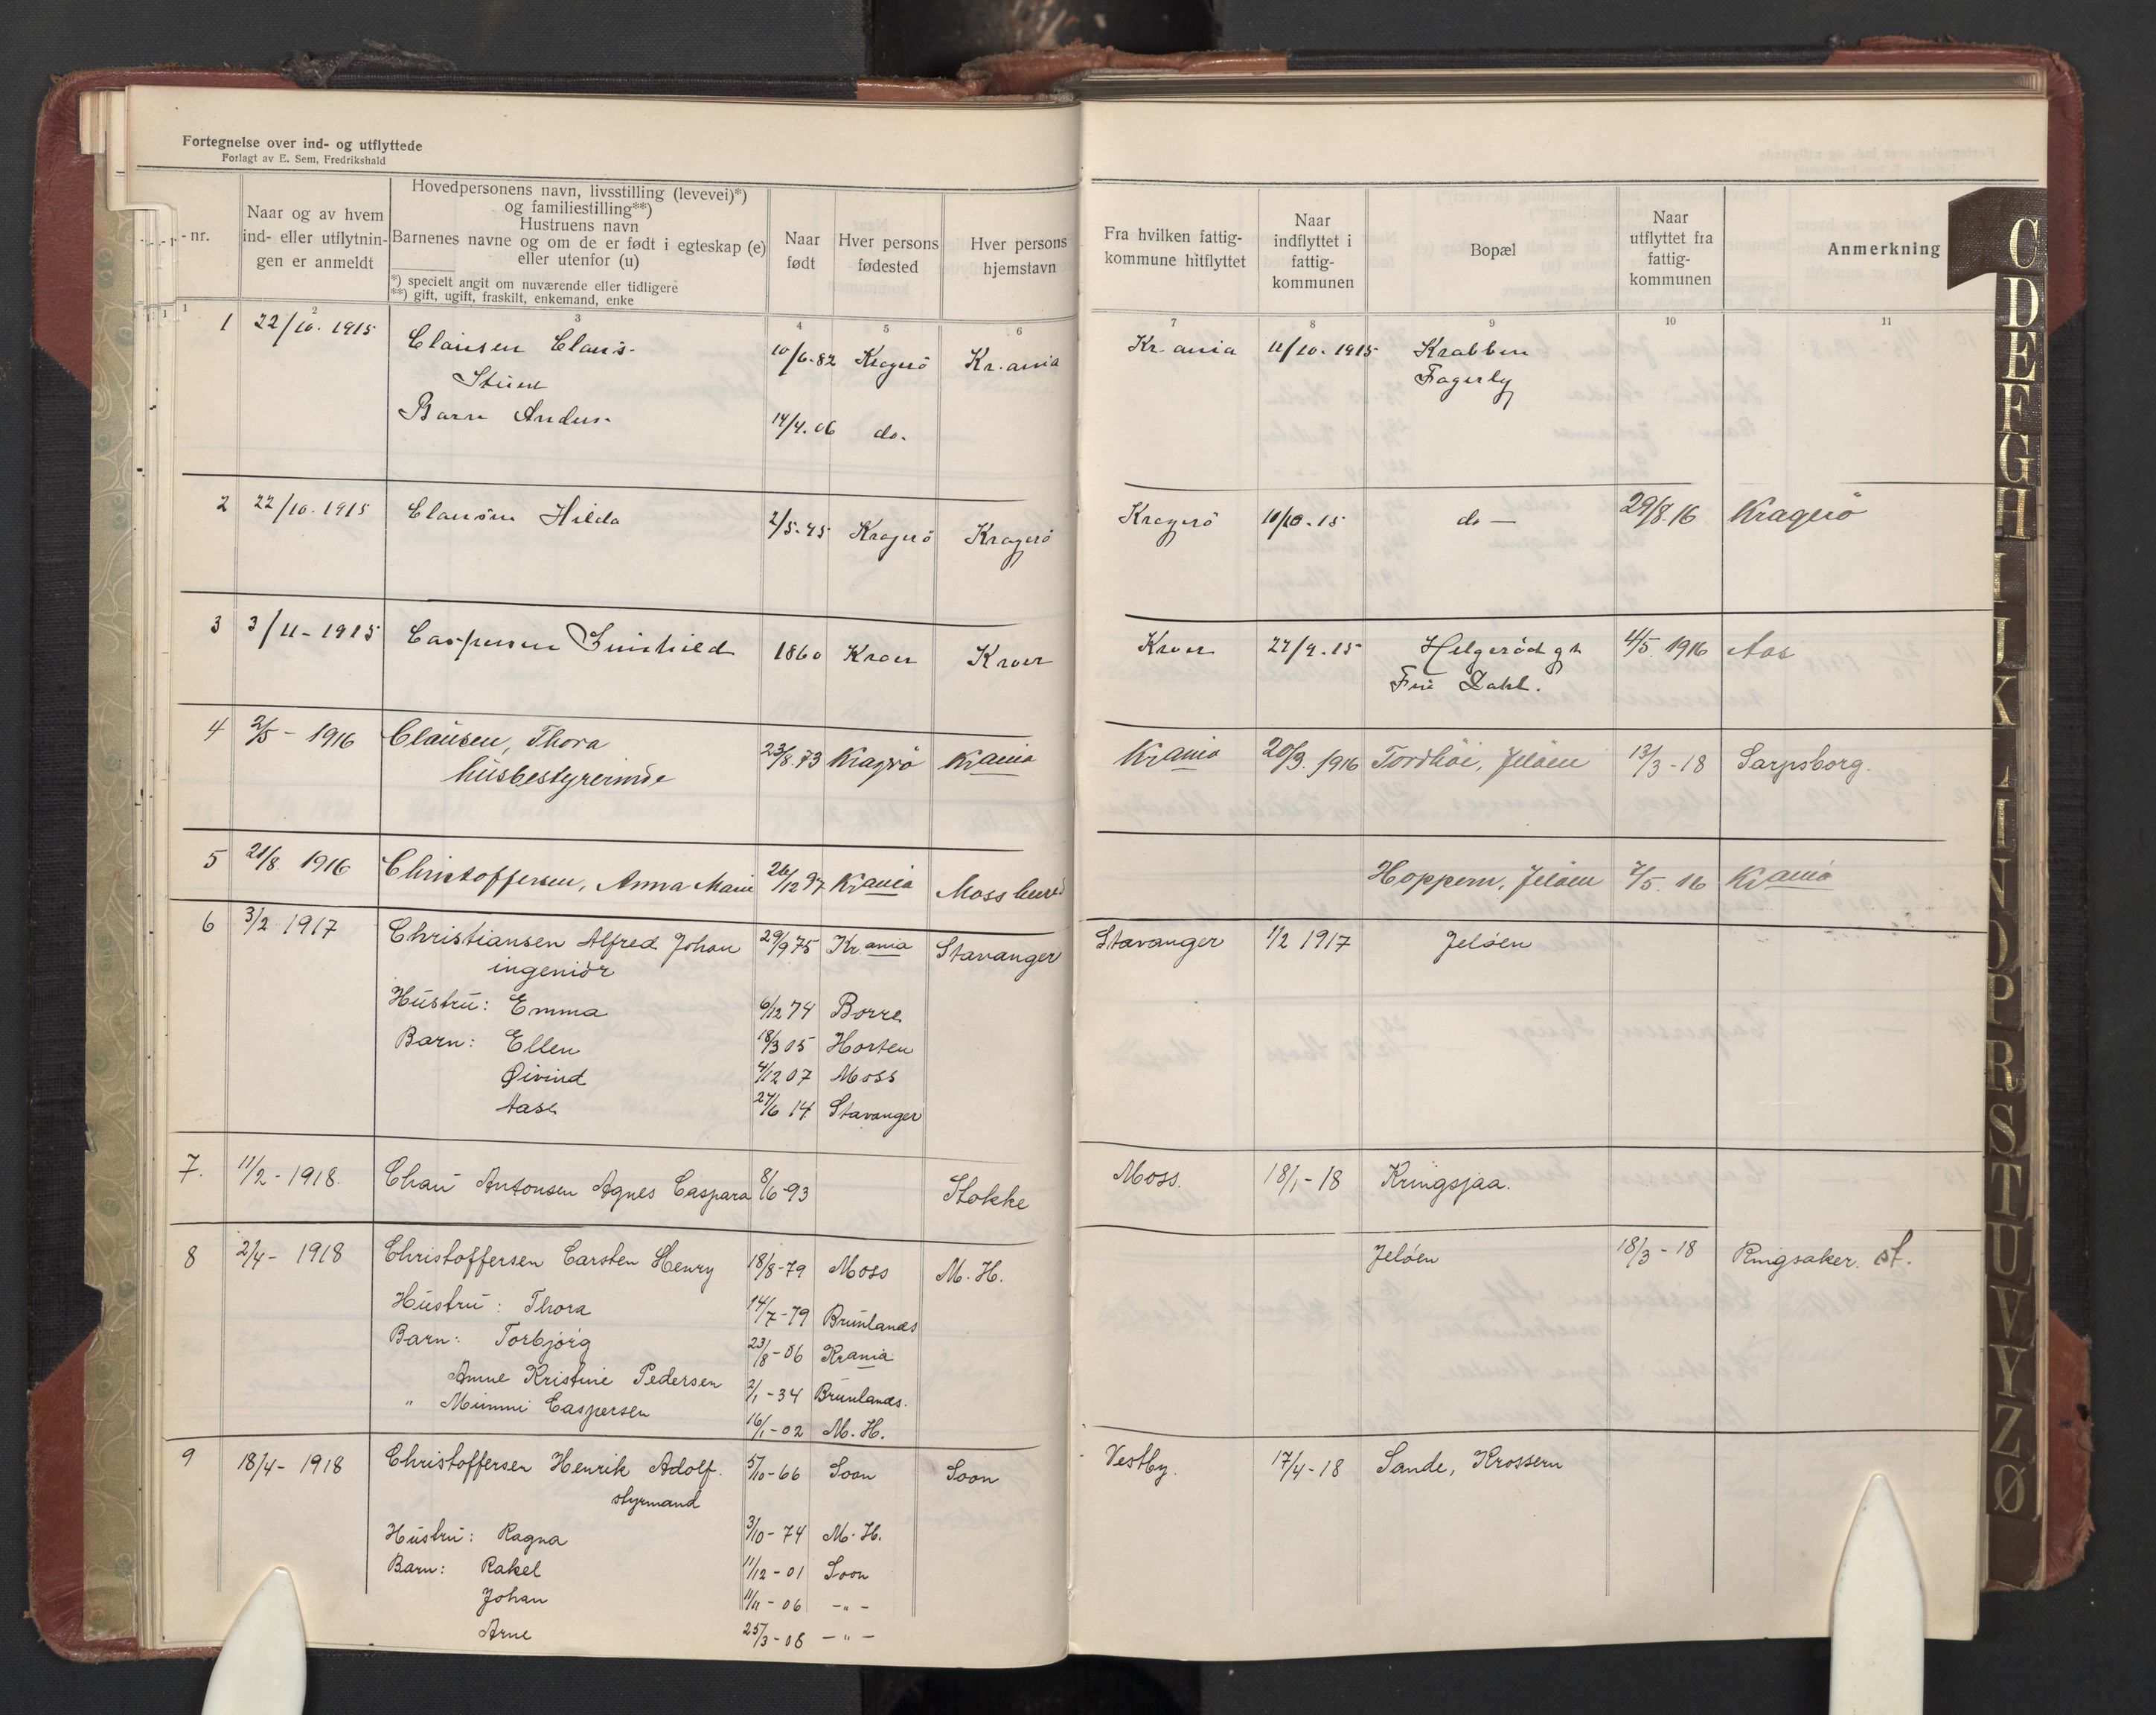 Fortegnelse over ind- og utflyttede
Forlagt av E. Sem, Fredrikshald
- nr.
Naar og av hvem
ind- eller utflytnin-
gen er anmeldt
Hovedpersonens navn, livsstilling (levevei)*)
og familiestilling**)
Hustruens navn
Barnenes navne og om de er født i egteskap (e)
eller utenfor (u)
*) specielt angit om nuværende eller tidligere
**) gift, ugift, fraskilt, enkemand, enke
Naar
født
Hver persons
fødested
Hver persons
hjemstavn
Fra hvilken fattig-
kommune hitflyttet
Naar
indflyttet i
fattig-
kommunen
Bopæl
Naar
utflyttet fra
fattig-
kommunen
Anmerkning
1 2 3 4 5 6 7 8 9 10 11
1 22/10. 1915 Clausen Claus. 10/6-82 Kragerö Kr.ania Kr.ania 11/10. 1915 Krabben
Fagerly
Barn 14/4.06 do.
2 22/10. 1915 Clausen Hilda 2/5-45 Kragerö Kragerö Kragerö 11/10-15 do — 29/8.16 Kragerö
3 3/11- 1915 Caspersen 1860 Kroer Kroer Kroer 27/9-15 Helgerödgt 4/5. 1916 Aas
Dahl.
4 2/5 - 1916 Clausen, Thora 23/8.73 Kragrö Krania Krania 20/3. 1916 Tordhöi, Jelöen 13/3-18 Sarpsborg.
husbestyrerinde
5 21/8. 1916 Christoffersen, Anna Marie 26/12 97 Krania Moss Hoppern, Jelöen 2/5. 16 Krania
6 3/2 1917 Christiansen Alfred Johan 29/9 75 Kr.ania Stavanger Stavanger 1/2 1917 Jelöen
ingeniör
Hustru: Emma 6/12 74 Borre
Barn: Ellen 18/3 05 Horten
Øivind 4/12 07 Moss
Aase 27/6 14 Stavanger
7. 11/2 - 1918. Chau Antonsen Agnes Caspara 8/6-93 Stokke Moss. 18/1-18 Kringsjaa.
8 2/4- 1918 Christoffersen Carsten Henry 18/8-79 Moss M. H. Jelöen 18/3-18 Ringsaker. st.
Hustru: Thora 14/7-79 Brunlanæs
Barn: Torbjörg 23/8-06 Krania
Anne Kristine Pedersen 2/1-34 Brunlanæs.
" Mimmi Caspersen 16/1-02 M. H.
9 18/4- 1918 Christoffersen Henrik Adolf. 5/10-66 Soon Soon Vestby. 17/4-18 Sande, Krossern
styrmand
Hustru: Ragna 3/10-74 M. H.
Barn: Rakel 11/12-01 Soon
Johan 11/11-06 -"-
Arne 25/3-08 -"-
C
D
E
F
G
H
I
J
K
L
I
N
O
P
R
S
T
U
V
Y
Z
Ø